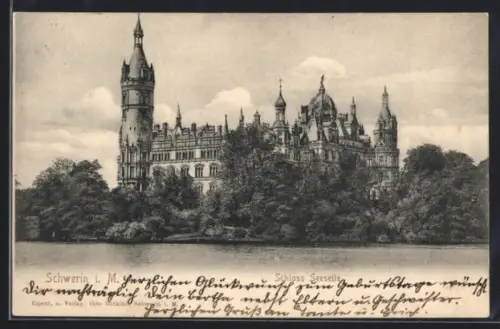 Schwerin i. M. Schloss Seeseite
Herzlichen Glückwunsch zum Geburtstage wünsch
Dir nachträglich Dein Bertha nebst Eltern u Geschwister.
Herzlichen Gruß an Tante u
Eigent. u. Verlag: